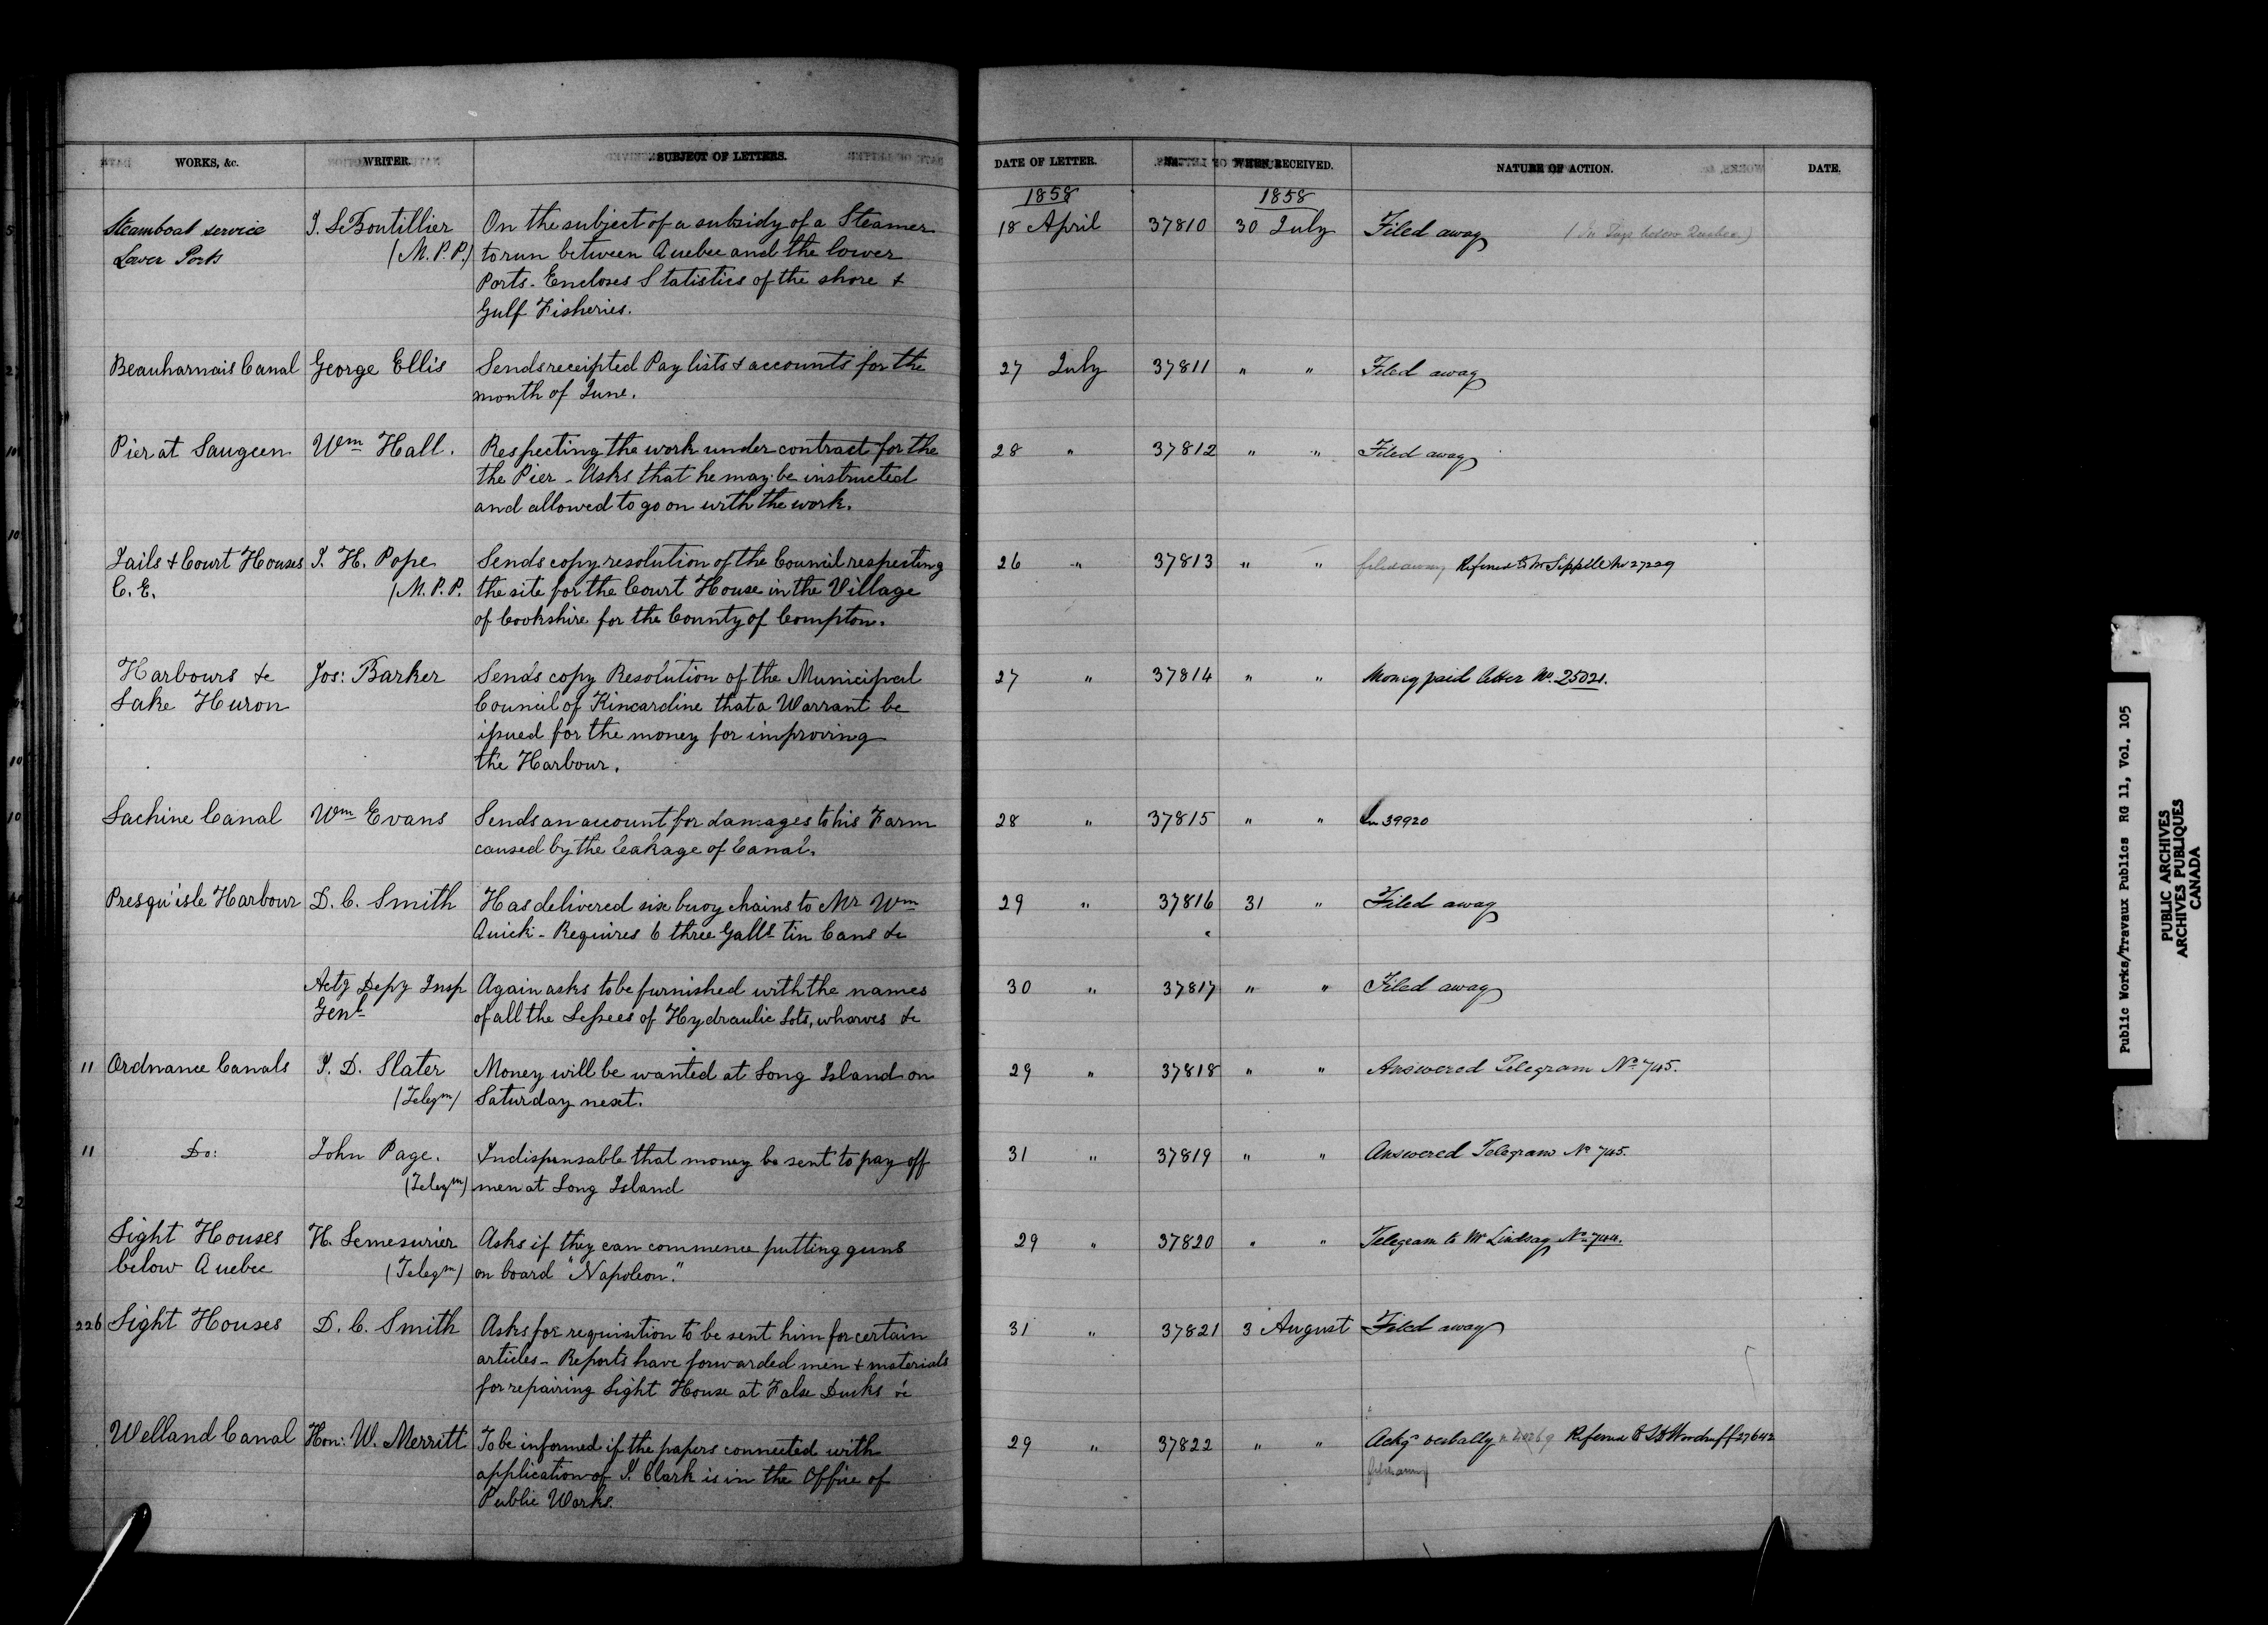 WORKS, &c. WRITER. SUBJECT OF LETTERS. DATE OF LETTER. WHEN RECEIVED. NATURE OF ACTION. DATE.
1858 1858
Steamboat service J. LeBoutillier On the subject of a subsidy of a Steamer 18 April 37810 30 July Filed away
Lower Ports (M.P.P.) to run between Quebec and the lower
Ports - Encloses Statistics of the shore &
Gulf Fisheries.
Beauharnais Canal George Ellis Sends receipted Pay lists & accounts for the 27 July 37811 " " Filed away
month of June.
Pier at Saugeen Wm Hall. Respecting the work under contract for the 28 " 37812 " " Filed away
the Pier - Asks that he may be instructed
and allowed to go on with the work.
Jails & Court Houses J. H. Pope Sends copy resolution of the Council respecting 26 " 37813 " " filed away Referred to Mr Sippell No 27229
C. E. (M.P.P. the site for the Court House in the Village
of Cookshire for the County of Compton.
Harbours &c Jos: Barker Sends copy Resolution of the Municipal 27 " 37814 " " Money paid letter No. 25021.
Lake Huron Council of Kincardine that a Warrant be
issued for the money for improving
the Harbour.
Lachine Canal Wm Evans Sends an account for damages to his Farm 28 " 37815 " " In 39920
caused by the leakage of Canal.
Presqu'isle Harbour D. C. Smith Has delivered six buoy chains to Mr Wm 29 " 37816 31 " Filed away
Quick - Requires 6 three Galls tin Cans &c
Actg Depy Insp Again asks to be furnished with the names 30 " 37817 " " Filed away
Genl of all the Lessees of Hydraulic Lots, wharves &c
11 Ordnance Canals J. D. Slater Money will be wanted at Long Island on 29 " 37818 " " Answered Telegram No 745.
(Telegm) Saturday next.
11 Do: John Page. Indispensable that money be sent to pay off 31 " 37819 " " Answered Telegram No 745.
(Telegm) men at Long Island
Light Houses H. Lemesurier Asks if they can commence putting guns 29 " 37820 " " Telegram to Mr Lindsay No 744.
below Quebec (Telegm) on board "Napoleon."
226 Light Houses D. C. Smith Asks for requisition to be sent him for certain 31 " 37821 3 August Filed away
articles - Reports have forwarded men & materials
for repairing Light House at False Ducks &c
Welland Canal Hon: W. Merritt To be informed if the papers connected with 29 " 37822 " " Ackgd verbally Referred to Woodruff 27642
application of J. Clark is in the Office of filed away
Public Works.
Public Works/Travaux Publics RG 11, Vol. 105
PUBLIC ARCHIVES
ARCHIVES PUBLIQUES
CANADA